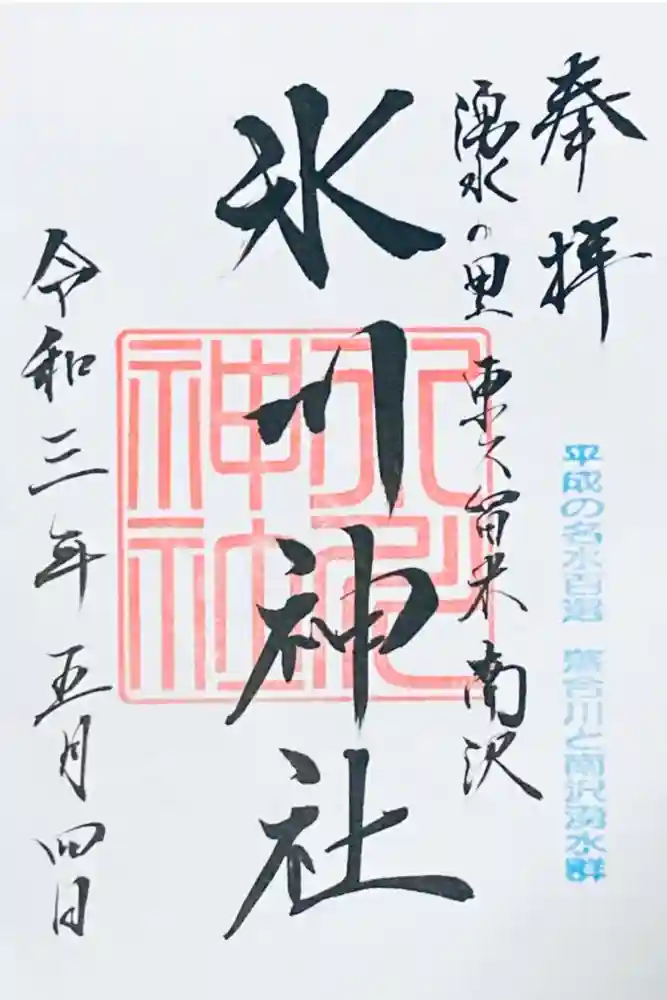 奉拝
平成の名水百選 落合川と南沢湧水群
湧水の里 東久留米 南沢
氷川神社
令和三年五月四日